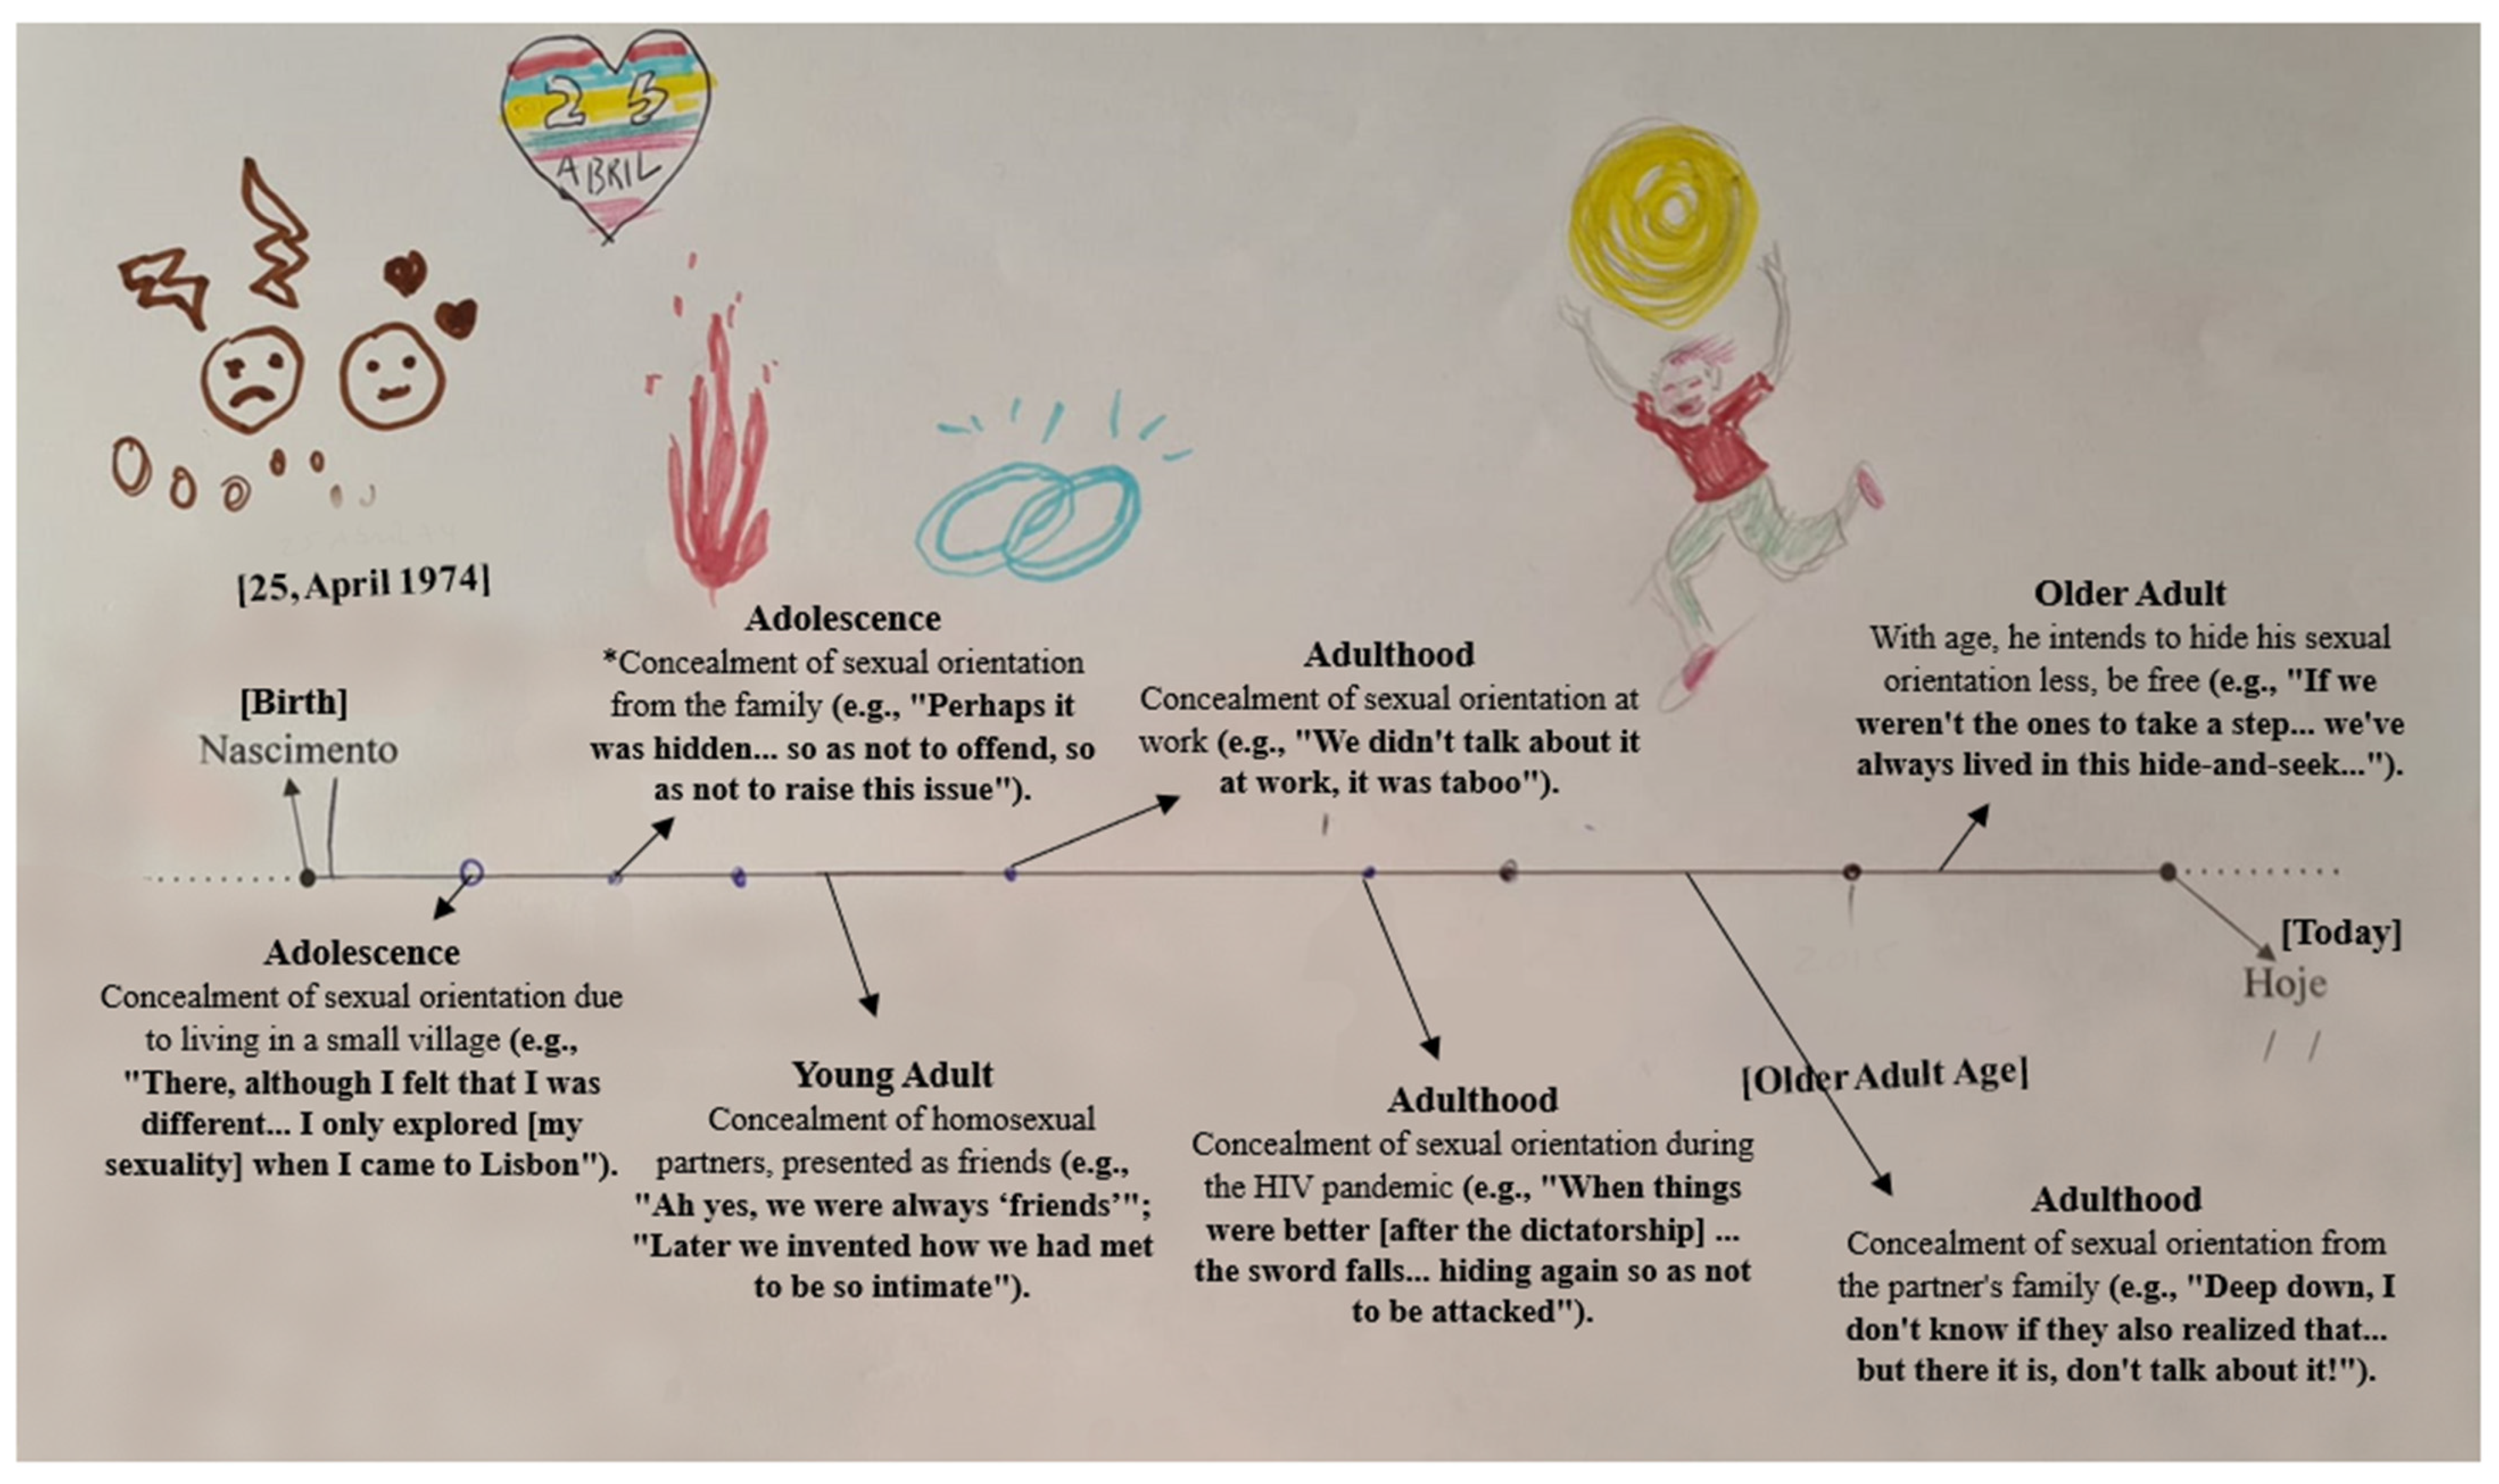 2 5
ABRIL
[25, April 1974]
[Birth]
Nascimento
Adolescence
*Concealment of sexual orientation
from the family (e.g., "Perhaps it
was hidden... so as not to offend, so
as not to raise this issue").
Adulthood
Concealment of sexual orientation at
work (e.g., "We didn't talk about it
at work, it was taboo").
Older Adult
With age, he intends to hide his sexual
orientation less, be free (e.g., "If we
weren't the ones to take a step... we've
always lived in this hide-and-seek...").
Adolescence
Concealment of sexual orientation due
to living in a small village (e.g.,
"There, although I felt that I was
different... I only explored [my
sexuality] when I came to Lisbon").
Young Adult
Concealment of homosexual
partners, presented as friends (e.g.,
"Ah yes, we were always ‘friends’";
"Later we invented how we had met
to be so intimate").
Adulthood
Concealment of sexual orientation during
the HIV pandemic (e.g., "When things
were better [after the dictatorship] ...
the sword falls... hiding again so as not
to be attacked").
[Older Adult Age]
[Today]
Hoje
/ /
Adulthood
Concealment of sexual orientation from
the partner's family (e.g., "Deep down, I
don't know if they also realized that...
but there it is, don't talk about it!").